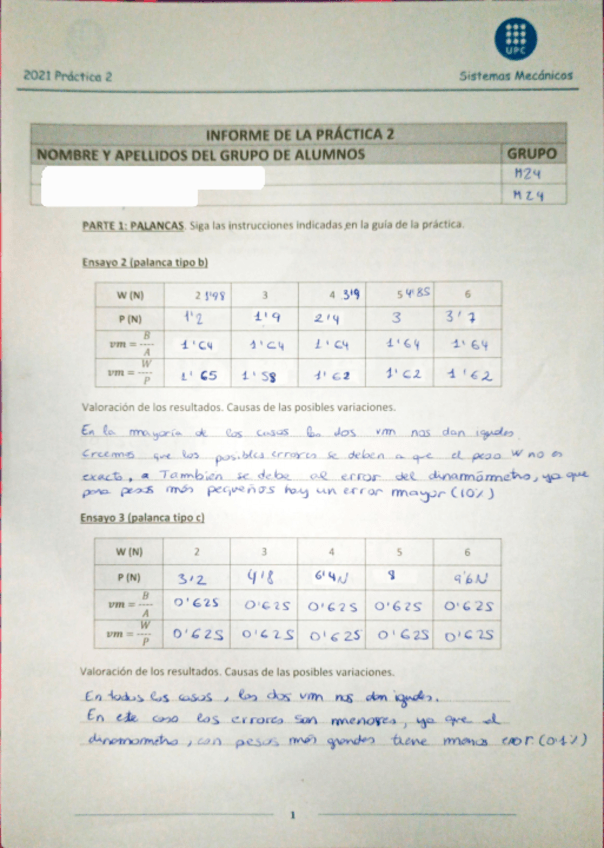 UPC
2021 Práctica 2 Sistemas Mecánicos
INFORME DE LA PRÁCTICA 2
NOMBRE Y APELLIDOS DEL GRUPO DE ALUMNOS GRUPO
M24
M24
PARTE 1: PALANCAS. Siga las instrucciones indicadas en la guía de la práctica.
Ensayo 2 (palanca tipo b)
W (N) 2 1'98 3 4 3'9 5 4'85 6
P (N) 1'2 1'9 2'4 3 3'7
vm = B/A 1'64 1'64 1'64 1'64 1'64
vm = W/P 1'65 1'58 1'62 1'62 1'62
Valoración de los resultados. Causas de las posibles variaciones.
En la mayoria de los casos los dos vm nos dan iguales.
Creemos que los posibles errores se deben a que el peso W no es
exacto, a Tambien se debe al error del dinamómetro, ya que
para pesos más pequeños hay un error mayor (10%)
Ensayo 3 (palanca tipo c)
W (N) 2 3 4 5 6
P (N) 3'2 4'8 6'4N 8 9'6N
vm = B/A 0'625 0'625 0'625 0'625 0'625
vm = W/P 0'625 0'625 0'625 0'625 0'625
Valoración de los resultados. Causas de las posibles variaciones.
En todos los casos, los dos vm nos dan iguales.
En este caso los errores son menores, ya que el
dinamometro, con pesos más grandes tiene menos error (0.1%)
1